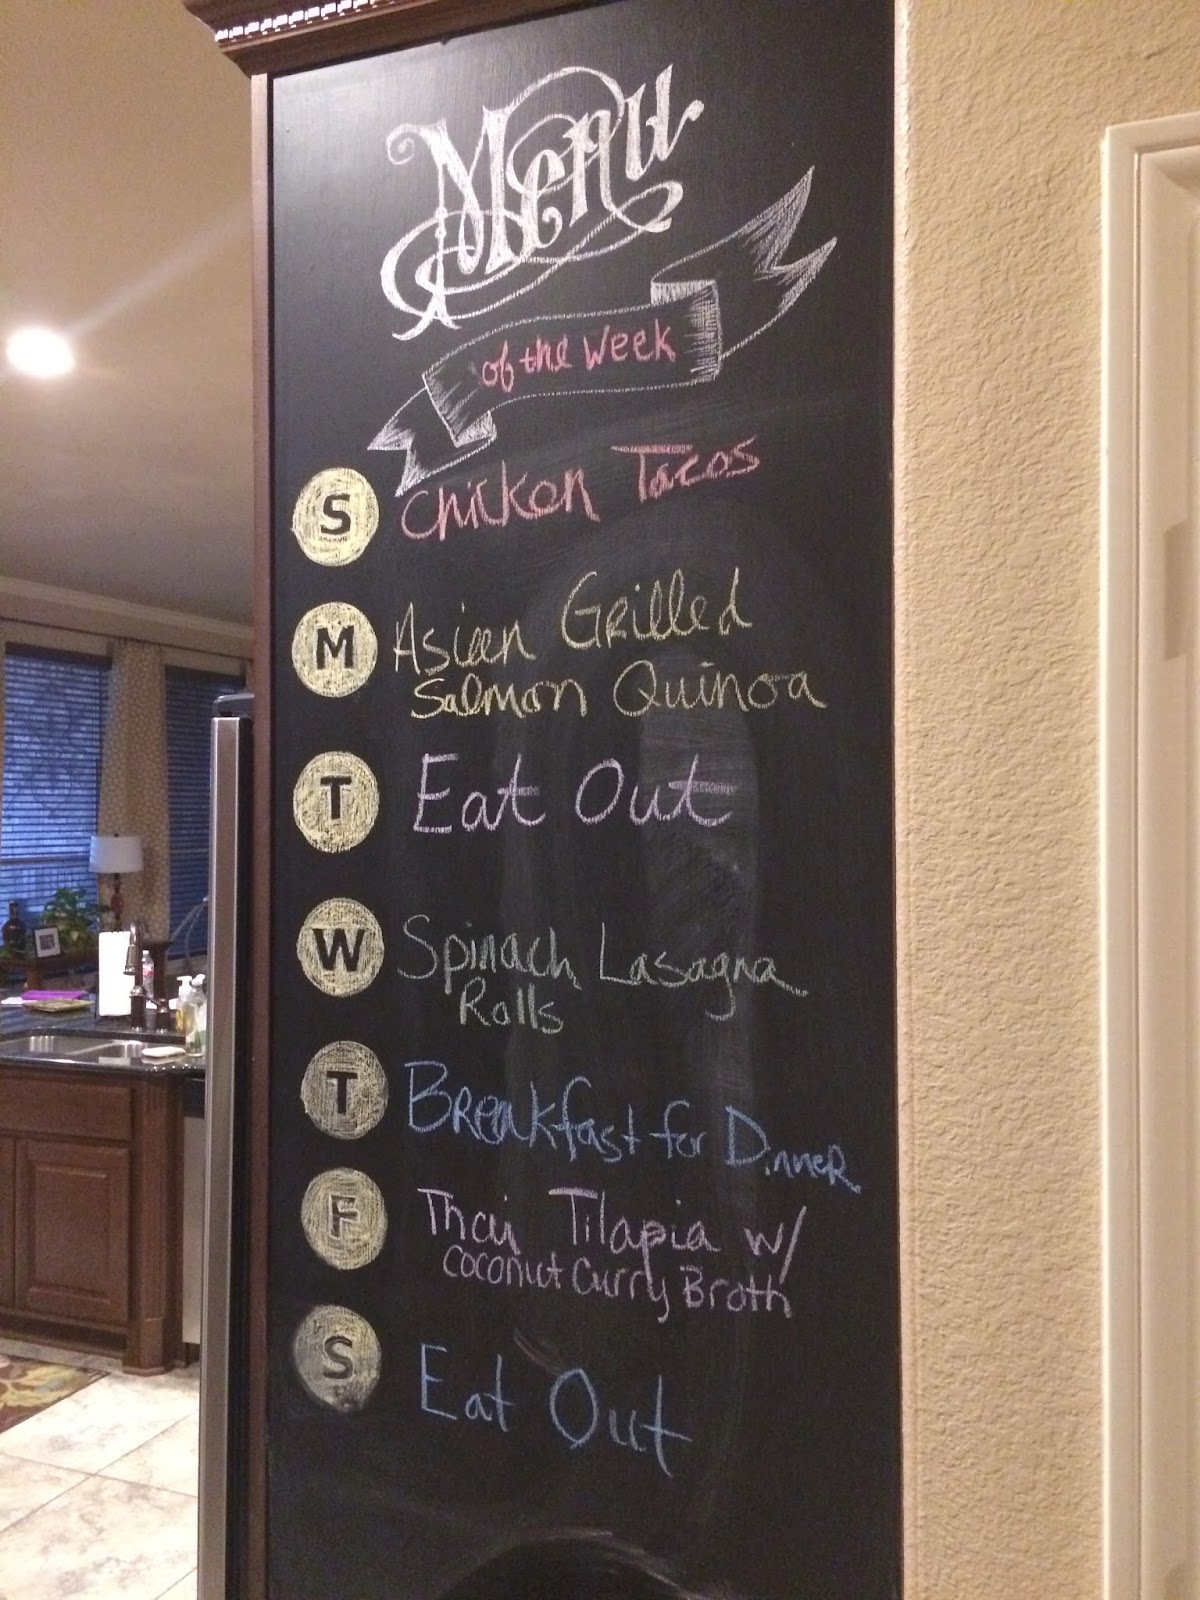 Menu
of the Week
S Chicken Tacos
M Asian Grilled
Salmon Quinoa
T Eat Out
W Spinach Lasagna
Rolls
T Breakfast for Dinner
F Thai Tilapia w/
Coconut Curry Broth
S Eat Out